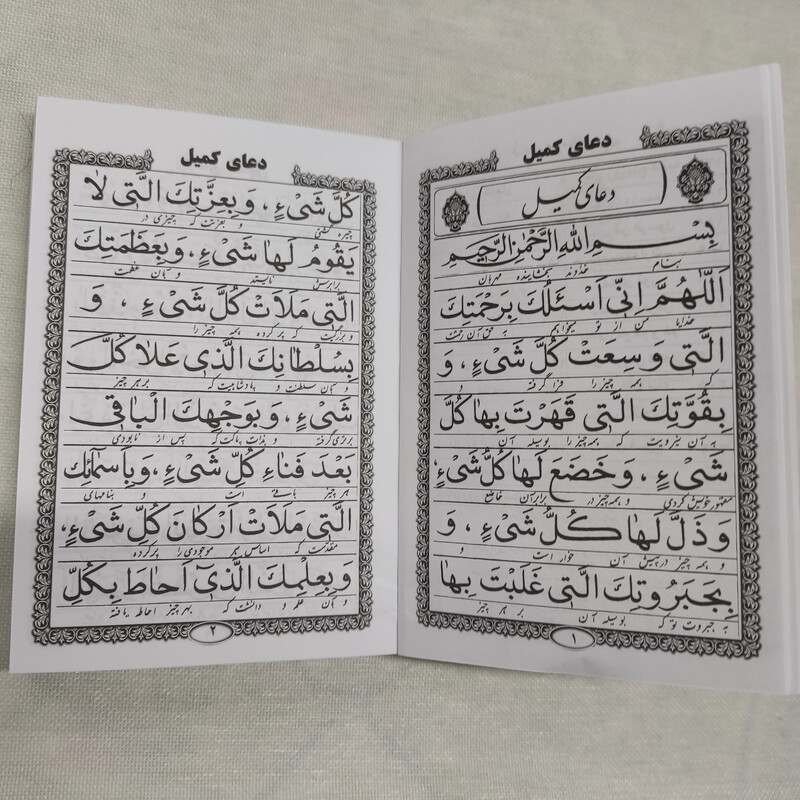 دعای کمیل
دعای کمیل
بِسْمِ اللهِ الرَّحْمٰنِ الرَّحیمِ
بنام خداوند بخشاینده مهربان
اَللّٰهُمَّ اِنّی اَسْئَلُكَ بِرَحْمَتِكَ
خدایا من از تو میخواهم به حق آن رحمتت
الَّتی وَسِعَتْ كُلَّ شَیْءٍ ، وَ
که همه چیز را فرا گرفته و
بِقُوَّتِكَ الَّتی قَهَرْتَ بِهٰا كُلَّ
به آن نیرویت که همه چیز را بوسیله آن
شَیْءٍ ، وَخَضَعَ لَهٰا كُلُّ شَیْءٍ ،
مقهور خویش کردی و همه چیز در برابر آن خاضع
وَذَلَّ لَهٰا كُلُّ شَیْءٍ ، وَ
و همه چیز در پیش آن خوار است و
بِجَبَرُوتِكَ الَّتی غَلَبْتَ بِهٰا
به جبروت تو که بوسیله آن بر هر چیز
۱
دعای کمیل
كُلَّ شَیْءٍ ، وَ بِعِزَّتِكَ الَّتی لاٰ
چیره گشتی و بعزتت که چیزی در
یَقُومُ لَهٰا شَیْءٌ ، وَبِعَظَمَتِكَ
برابرش نایستد و بآن عظمت
الَّتی مَلَاَتْ كُلَّ شَیْءٍ ، وَ
و بزرگیت که پر کرده همه چیز را
بِسُلْطٰانِكَ الَّذی عَلاٰ كُلَّ
و بآن سلطنت و پادشاهیت که بر هر چیز
شَیْءٍ ، وَ بِوَجْهِكَ الْبٰاقی
برتری گرفته و بذات پاکت که پس از نابودی
بَعْدَ فَنٰاءِ كُلِّ شَیْءٍ ، وَبِاَسْمٰائِكَ
هر چیز باقی است و بنامهای
الَّتی مَلَاَتْ اَرْكٰانَ كُلِّ شَیْءٍ ،
مقدست که اساس هر موجودی را پر کرده
وَ بِعِلْمِكَ الَّذی اَحٰاطَ بِكُلِّ
و بآن علم و دانشت که بهر چیز احاطه یافته
۲